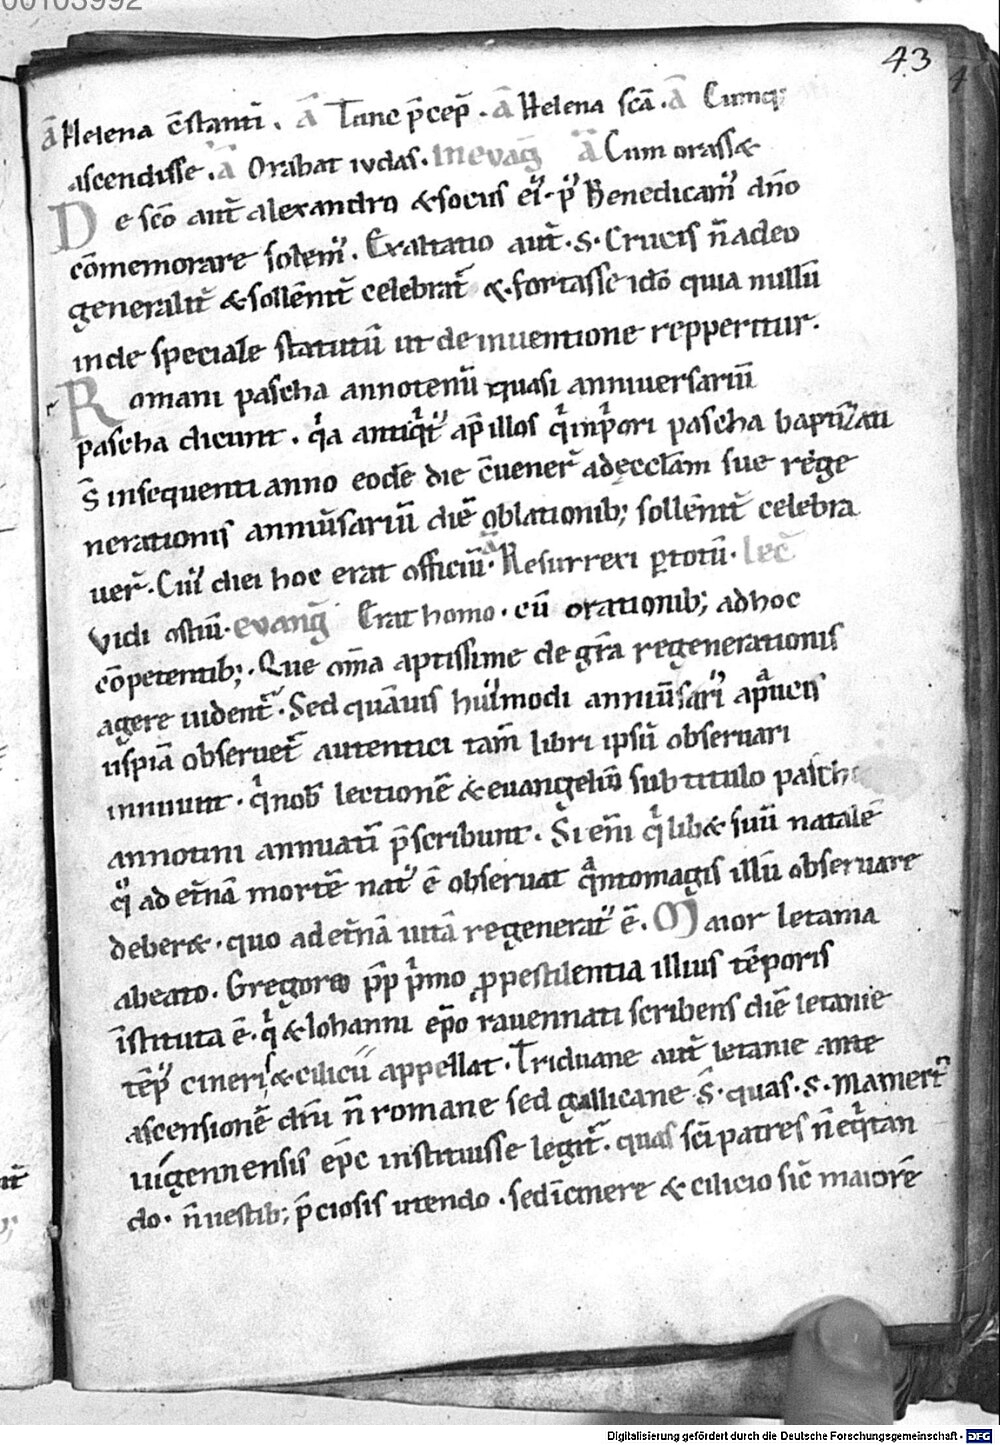 00103992
43
A᷃ Helena c̄stanti᷑. A᷃ Tunc p̄cep̄. A᷃ Helena sc̄a. A᷃ Cumq;
ascendisse. A᷃ Orabat iudas. In evāg A᷃ Cum orass&
De sc̄o aut̄ alexandro & sociis ei᷒. p᷒ Benedicam᷒ dn̄o
cōmemorare solem᷒. Exaltatio aut̄. S. Crucis n̄ adeo
generalit̄ & sollēnit̄ celebrat᷑ &. fortasse idō quia nullū
inde speciale statutū ut de inuentione repperitur.
Romani pascha annotenū quasi anniuersariū
pascha dicunt. qⁱa antiqⁱt᷒ ap̄ illos qⁱ in pⁱori pascha baptizati
s̄ in sequenti anno eodē die c̄uener̄ ad ęccl̄am sue rege
nerationis anniu̅sariū diē oblationib; sollēnit̄ celebra
uer̄. Cui᷒ diei hoc erat officiū. A᷃ Resurrexi p̱totū. Lec̄
Vidi ostiū. evanḡ Erat homo. cū orationib; ad hoc
cōpetentib;. Que om̄a aptissime de gr̄a regenerationis
agere uident᷑. Sed quāuis hui᷒modi anniu̅sari᷒ ap̄ᵃucis
uspiā obseruet᷑ autentici tam̄ libri ipsū obseruari
innuunt. qⁱ nob̄ lectionē & euangeliū sub titulo pasche
annotini annuatī p̄scribunt. Si eni̅ qⁱlib& suū natalē
q᷒ ad et̄nā mortē nat᷒ ē obseruat qᵃnto magis illū obseruare
deber&. quo ad et̄nā uitā regenerat᷒ ē. Maior letania
a beato. Gregorio pp̄ pⁱmo ꝓ pestilentia illius tēporis
īstituta ē. qⁱ & Iohanni ep̄o rauennati scribens diē letanie
tēp᷒ cineris & cilicii appellat. Triduane aut̄ letanie ante
ascensionē dn̄i n̄ romane sed gallicane s̄. quas. S. Mamert᷒
uigennensis ep̄c instituisse legit᷑. quas sc̄i patres n̄ eqⁱtan
do. n̄ uestib; p̄ciosis utendo. sed ī cinere & cilicio sic̄ maiorē
Digitalisierung gefördert durch die Deutsche Forschungsgemeinschaft - DFG